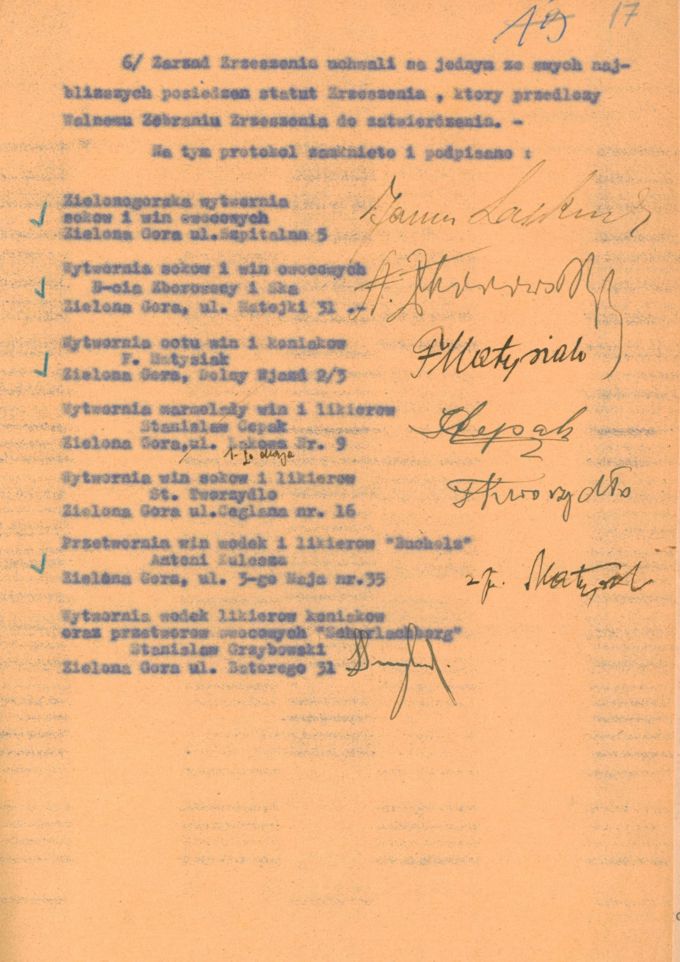 17
6/ Zarzad Zrzeszenia uchwali na jednym ze swych naj-
blizszych posiedzen statut Zrzeszenia , ktory przedlozy
Walnemu Zebraniu Zrzeszenia do zatwierdzenia. -
Na tym protokol zamknieto i podpisano :
Zielonogorska wytwornia
sokow i win owocowych
Zielona Gora ul.Szpitalna 5
Wytwornia sokow i win owocowych
B-cia Zborowscy i Ska
Zielona Gora, ul. Matejki 31
Wytwornia octu win i koniakow
F. Matysiak
F. Matysiak
Zielona Gora, Dolny Wjazd 2/3
Wytwornia marmelady win i likierow
Stanislaw Cepak
SCepak
Zielona Gora,ul. Lakowa Nr. 9
1-go Maja
Wytwornia win sokow i likierow
St. Tworzydlo
STworzydło
Zielona Gora ul.Ceglana nr. 16
Przetwornia win wodek i likierow "Bucholz"
Antoni Kulesza
Zielona Gora, ul. 3-go Maja nr.35
Wytwornia wodek likierow koniakow
oraz przetworow owocowych "Scharlachberg"
Stanislaw Grzybowski
Zielona Gora ul. Batorego 31